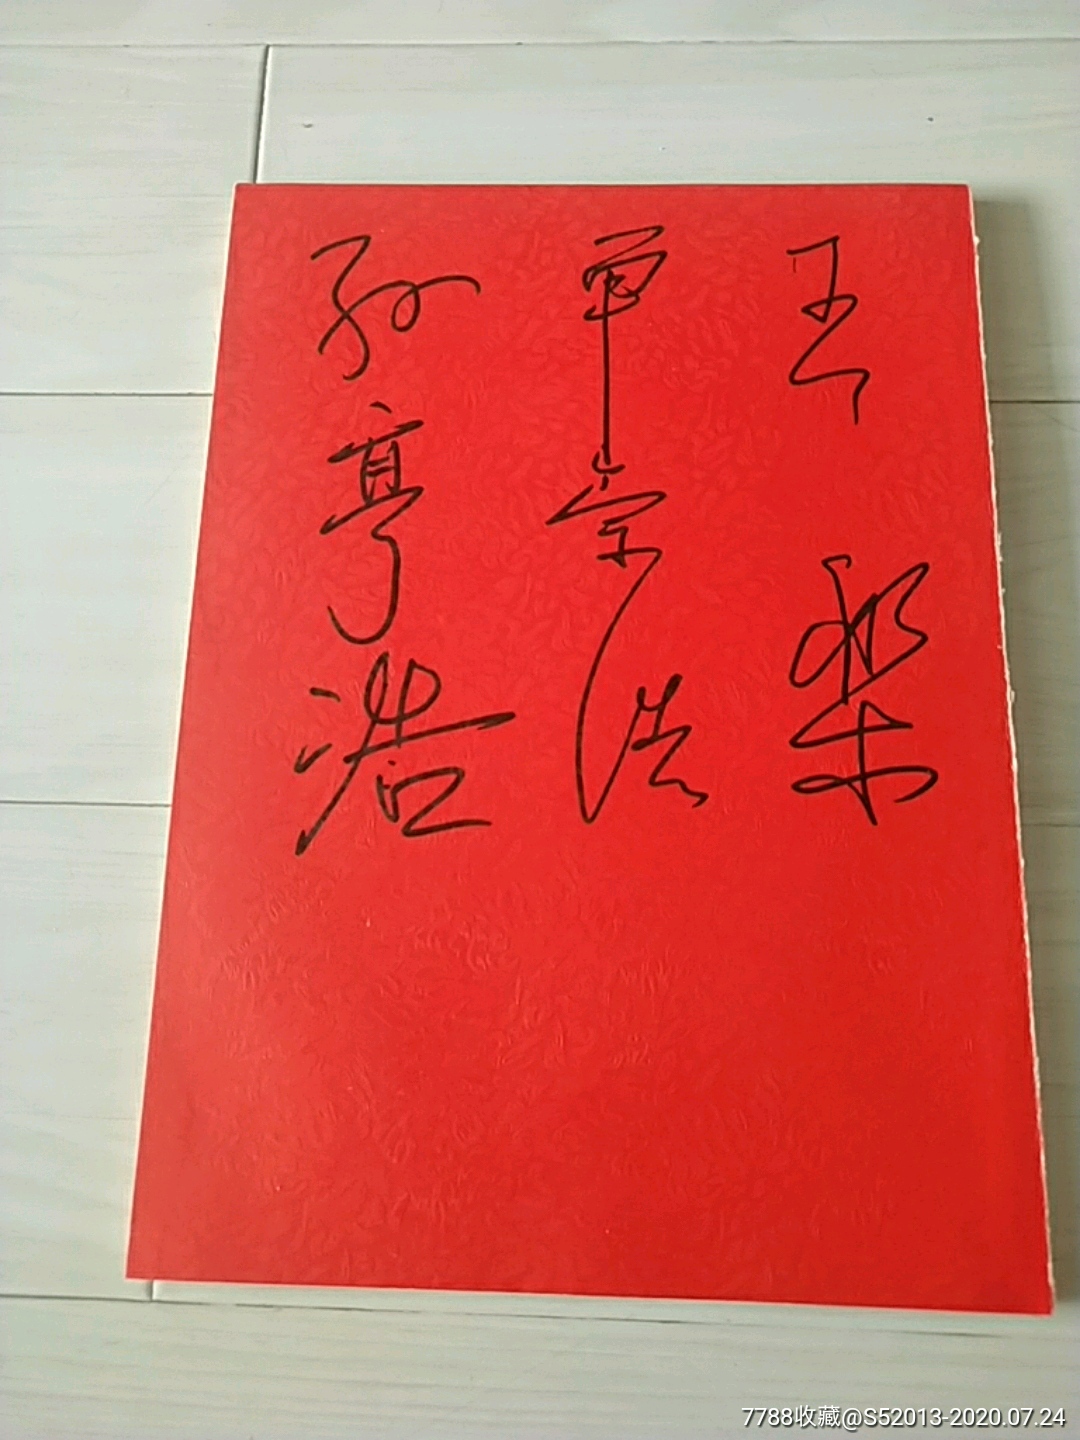 王
单宗浩
孙亨浩
7788收藏@S52013-2020.07.24